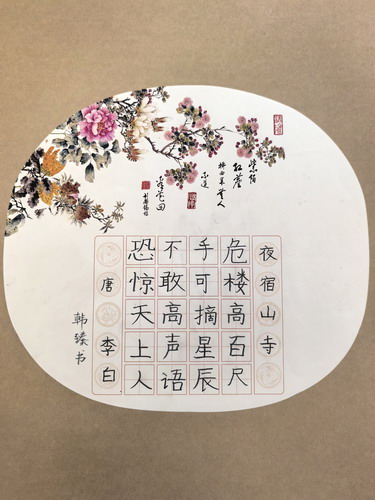 夜宿山寺
危楼高百尺
手可摘星辰
不敢高声语
恐惊天上人
唐李白
韩臻书